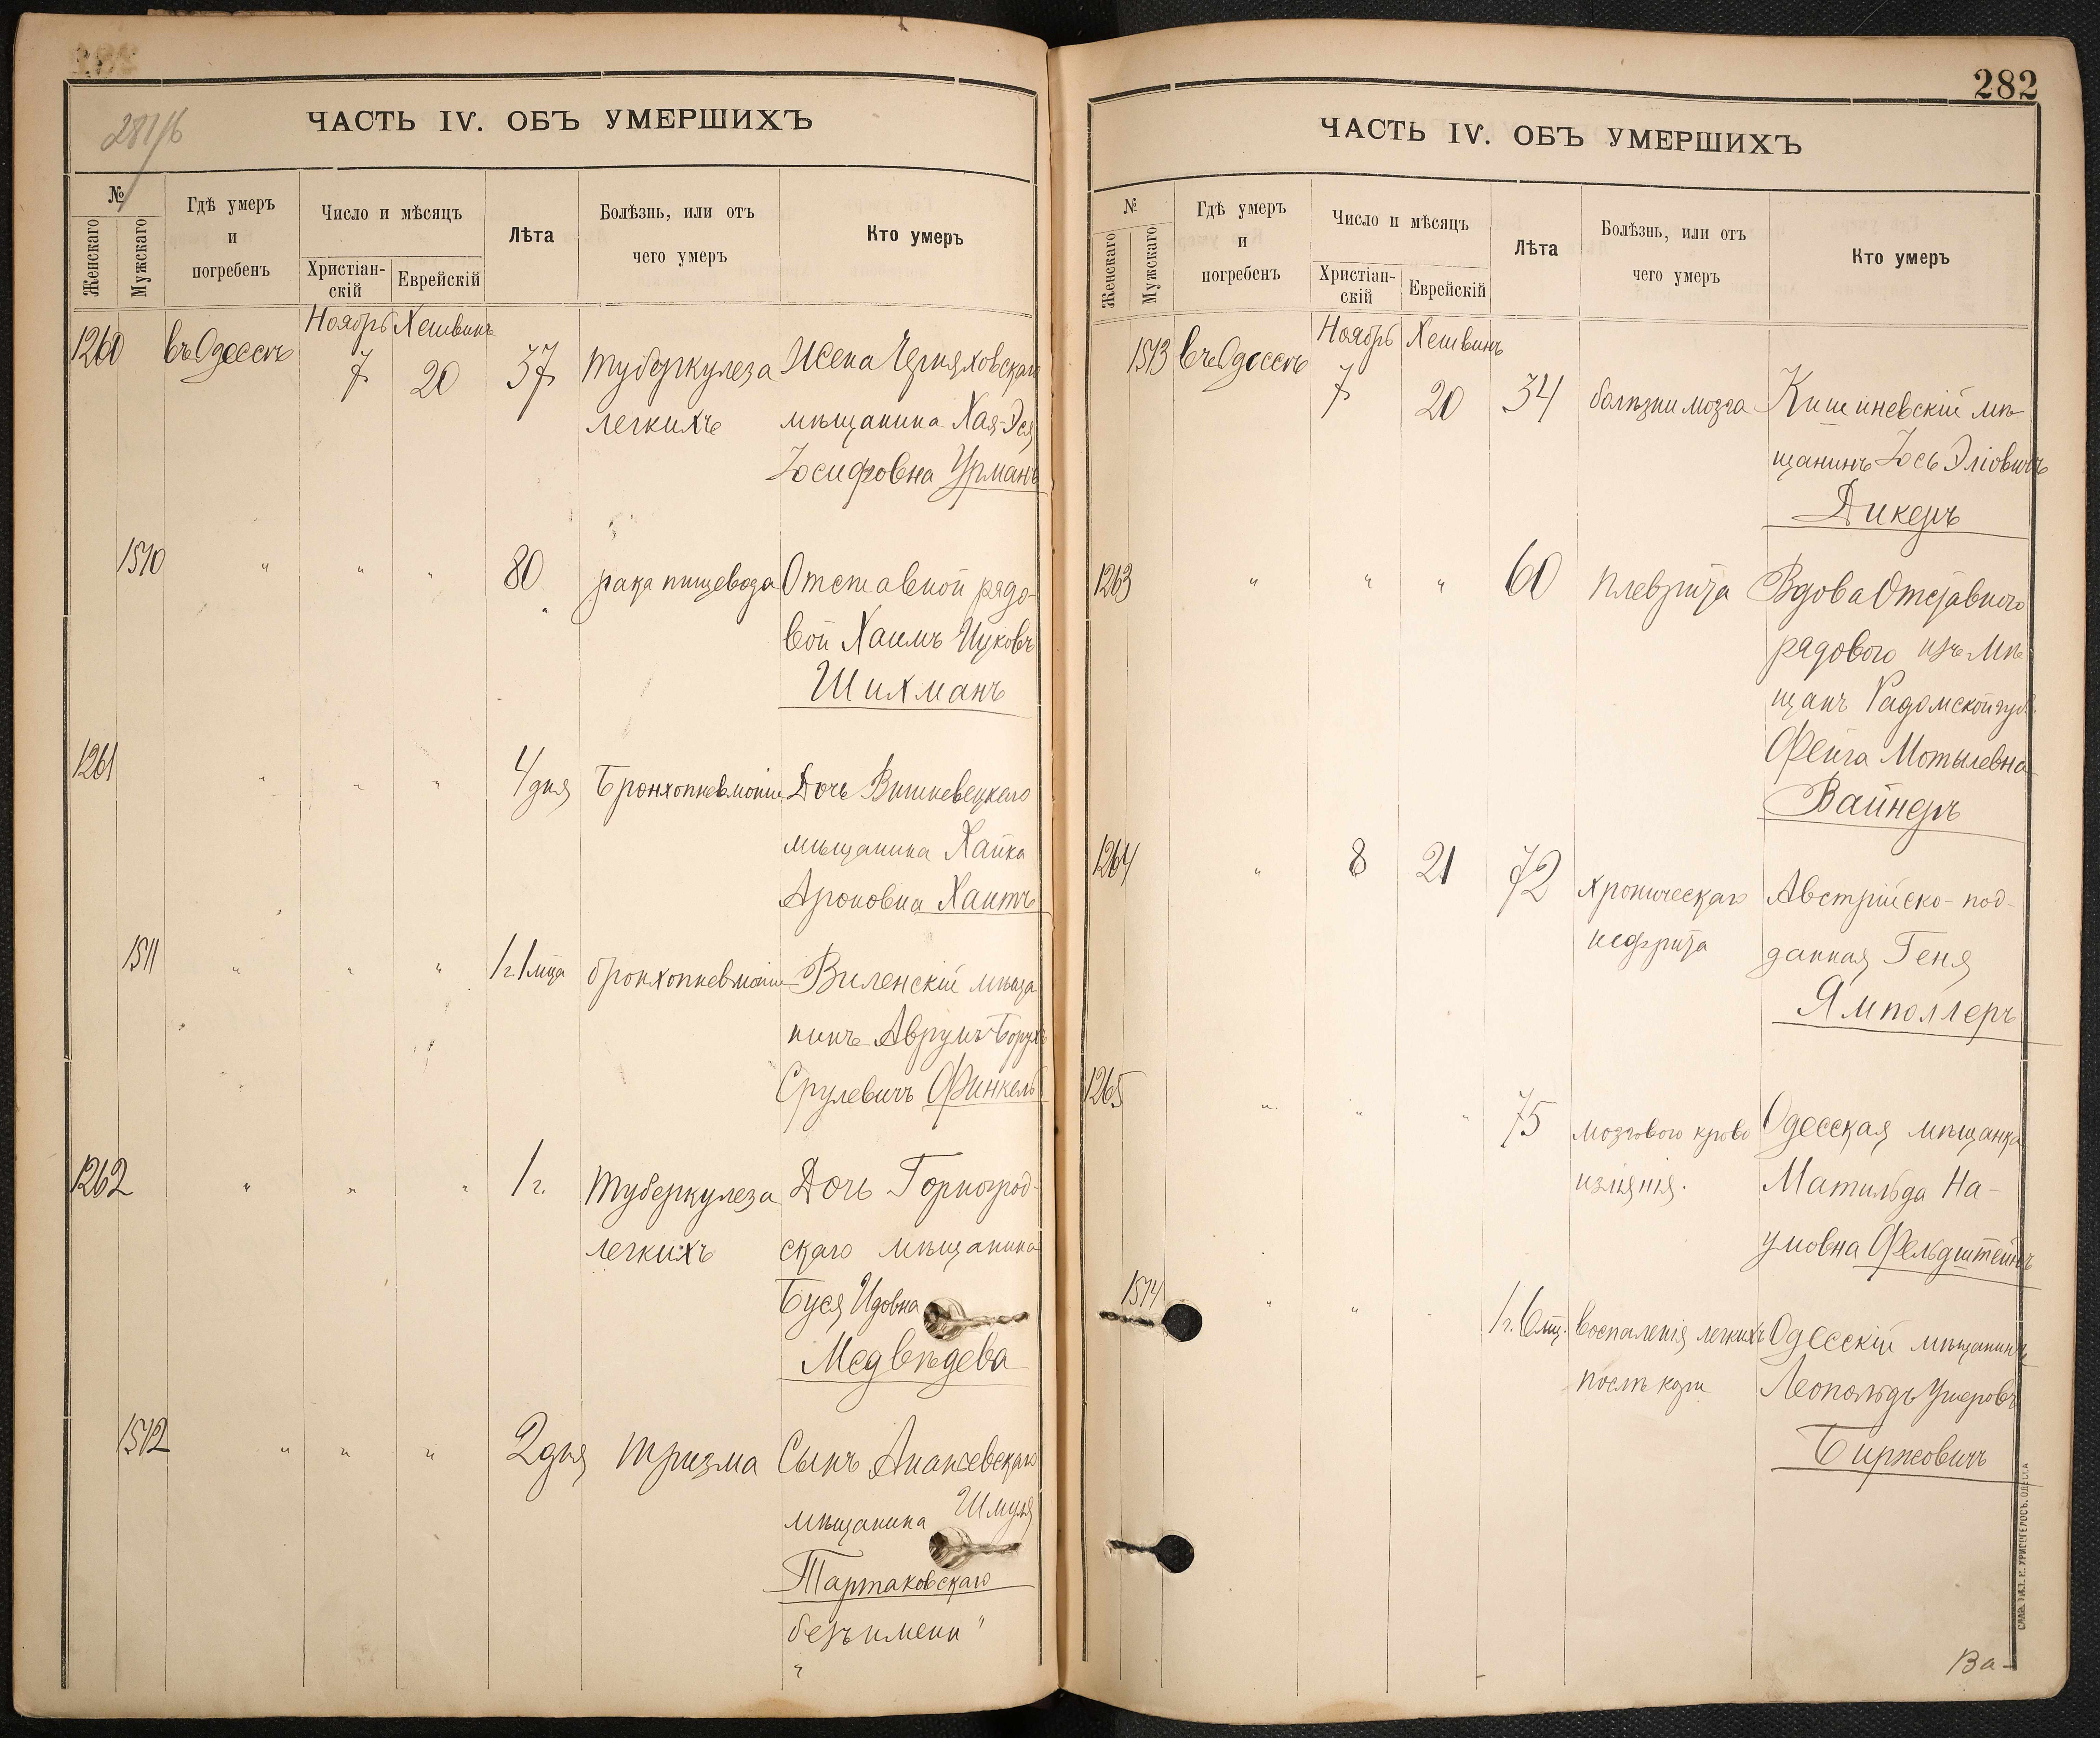 281/б
ЧАСТЬ IV. ОБЪ УМЕРШИХЪ
№
Женскаго
Мужскаго
Гдѣ умеръ
и
погребенъ
Число и мѣсяцъ
Христіан-
скій
Еврейскій
Лѣта
Болѣзнь, или отъ
чего умеръ
Кто умеръ
Ноябрь Хешвинъ
1260 въ Одессѣ 7 20 37 туберкулеза Жена Черняховскаго
легкихъ мѣщанина Хая-Эся
Іосифовна Урманъ
1510 " " " 80 рака пищевода Отставной рядо-
вой Хаимъ Ицковъ
Шихманъ
1261 " " " 4 дня Бронхопневмоніи Дочь Вишневецкаго
мѣщанина Хайка
Ароновна Хаитъ
1511 " " " 1 г. 1 мца бронхопневмоніи Виленскій мѣща
нинъ Аврумъ-Борухъ
Срулевичъ Финкель
1262 " " " 1 г. туберкулеза Дочь Горноград-
легкихъ скаго мѣщанина
Буся Идовна
Медвѣдева
1512 " " " 2 дня тризма Сынъ Ананьевскаго
мѣщанина Шмуля
Тартаковскаго
безъ имени "
"
282
ЧАСТЬ IV. ОБЪ УМЕРШИХЪ
№
Женскаго
Мужскаго
Гдѣ умеръ
и
погребенъ
Число и мѣсяцъ
Христіан-
скій
Еврейскій
Лѣта
Болѣзнь, или отъ
чего умеръ
Кто умеръ
Ноябрь Хешвинъ
1513 въ Одессѣ 7 20 34 болѣзни мозга Кишиневскій мѣ
щанинъ Іось Эліовичъ
Дикеръ
1263 " " " 60 плеврита Вдова Отставного
рядового изъ мѣ
щанъ Радомской губ.
Фейга Мотылевна
Вайнеръ
1264 " 8 21 72 хроническаго Австрійско-под-
нефрита данная Геня
Ямполлеръ
1265 " " " 75 мозгового крово Одесская мѣщанка
изліянія. Матильда На-
умовна Фельдштейнъ
1514 " " " 1 г. 6 мц. воспаленія легкихъ Одесскій мѣщанинъ
послѣ кори Леопольдъ Ушеровъ
Биржовичъ
Ва-